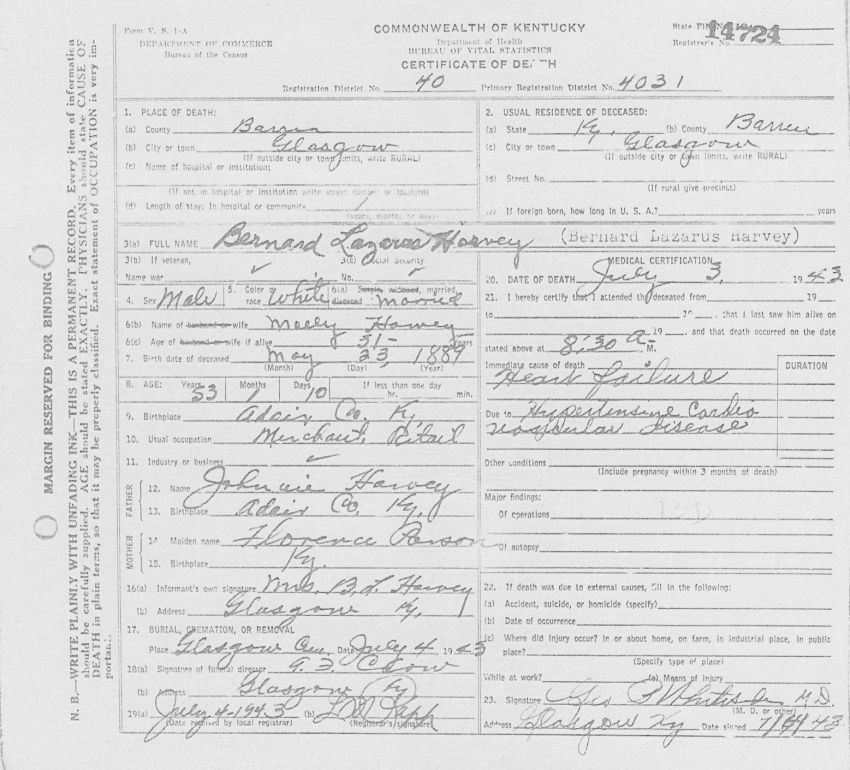 Form V. S. 1-A
DEPARTMENT OF COMMERCE
Bureau of the Census
COMMONWEALTH OF KENTUCKY
Department of Health
BUREAU OF VITAL STATISTICS
CERTIFICATE OF DEATH
State File No. 14724
Registrar's No.
Registration District No. 40 Primary Registration District No. 4031
MARGIN RESERVED FOR BINDING
N. B.—WRITE PLAINLY WITH UNFADING INK—THIS IS A PERMANENT RECORD. Every item of information
should be carefully supplied. AGE should be stated EXACTLY. PHYSICIANS should state CAUSE OF
DEATH in plain terms, so that it may be properly classified. Exact statement of OCCUPATION is very im-
portant.
1. PLACE OF DEATH:
(a) County Barren
(b) City or town Glasgow
(If outside city or town limits, write RURAL)
(c) Name of hospital or institution:
(If not in hospital or institution write street number or location)
(d) Length of stay: In hospital or community
(years, months or days)
2. USUAL RESIDENCE OF DECEASED:
(a) State Ky. (b) County Barren
(c) City or town Glasgow
(If outside city or town limits, write RURAL)
(d) Street No.
(If rural give precinct)
If foreign born, how long in U. S. A.? years
3(a) FULL NAME Bernard Lazerus Harvey (Bernard Lazarus Harvey)
3(b) If veteran,
Name war
3(c) Social Security
No.
4. Sex Male 5. Color or race White 6(a) Single, widowed, married, divorced Married
6(b) Name of husband or wife Maely Harvey
6(c) Age of husband or wife if alive 51 years
7. Birth date of deceased May 23, 1889
(Month) (Day) (Year)
8. AGE: Years 53 Months 1 Days 10 If less than one day
hr. min.
9. Birthplace Adair Co. Ky.
10. Usual occupation Merchant Retail
11. Industry or business
FATHER
12. Name Johnnie Harvey
13. Birthplace Adair Co. Ky.
MOTHER
14 Maiden name Florence Parson
15. Birthplace Ky.
16(a) Informant's own signature Mrs. B. L. Harvey
(b) Address Glasgow Ky.
17. BURIAL, CREMATION, OR REMOVAL
Place Glasgow Date July 4, 1943
18(a) Signature of funeral director
(b) Address Glasgow Ky
19(a) July 4-1943 (b)
(Date received by local registrar) (Registrar's signature)
MEDICAL CERTIFICATION
20. DATE OF DEATH July 3, 1943
21. I hereby certify that I attended the deceased from 19
to 19 , that I last saw him alive on
19 , and that death occurred on the date
stated above at 8:30 A. M.
Immediate cause of death DURATION
Heart failure
Due to Hypertensive Cardio
vascular disease
Other conditions
(Include pregnancy within 3 months of death)
Major findings:
Of operations
Of autopsy
22. If death was due to external causes, fill in the following:
(a) Accident, suicide, or homicide (specify)
(b) Date of occurrence
(c) Where did injury occur? In or about home, on farm, in industrial place, in public
place?
(Specify type of place)
While at work? (e) Means of injury
23. Signature Geo M. D.
(M. D. or other)
Address Glasgow Ky Date signed 43